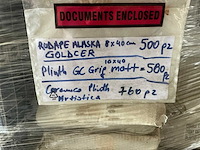 DOCUMENTS ENCLOSED
RODAPE ALASKA 8x40cm 500 pz
GOLDCER
10x40
Plinth GC Grip matt = 580 pz
Ceramico Plinth 760 pz
Artistica